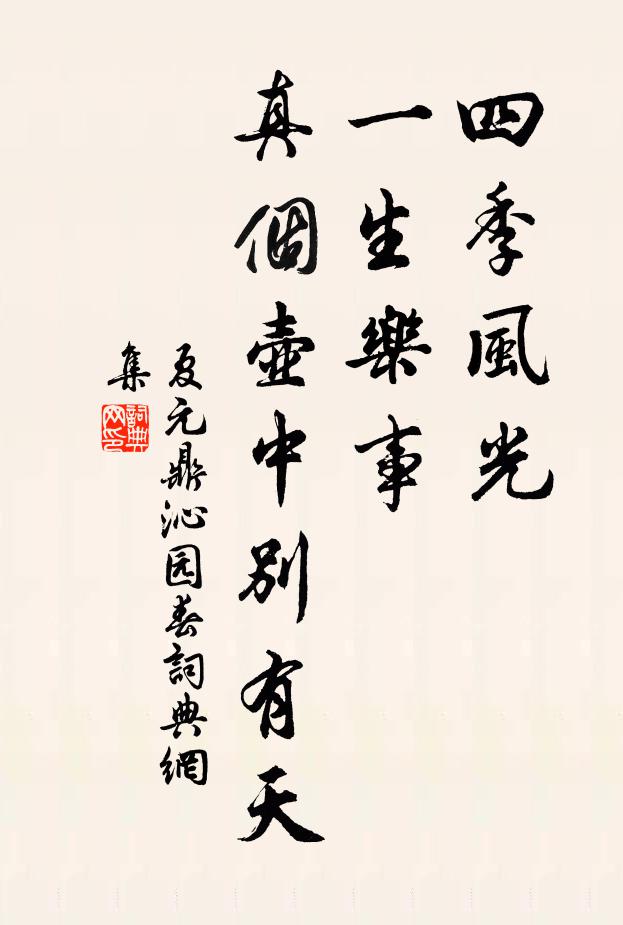 四季風光
一生樂事
真個壺中別有天
夏元鼎沁园春詞典網
集
詞典
网印